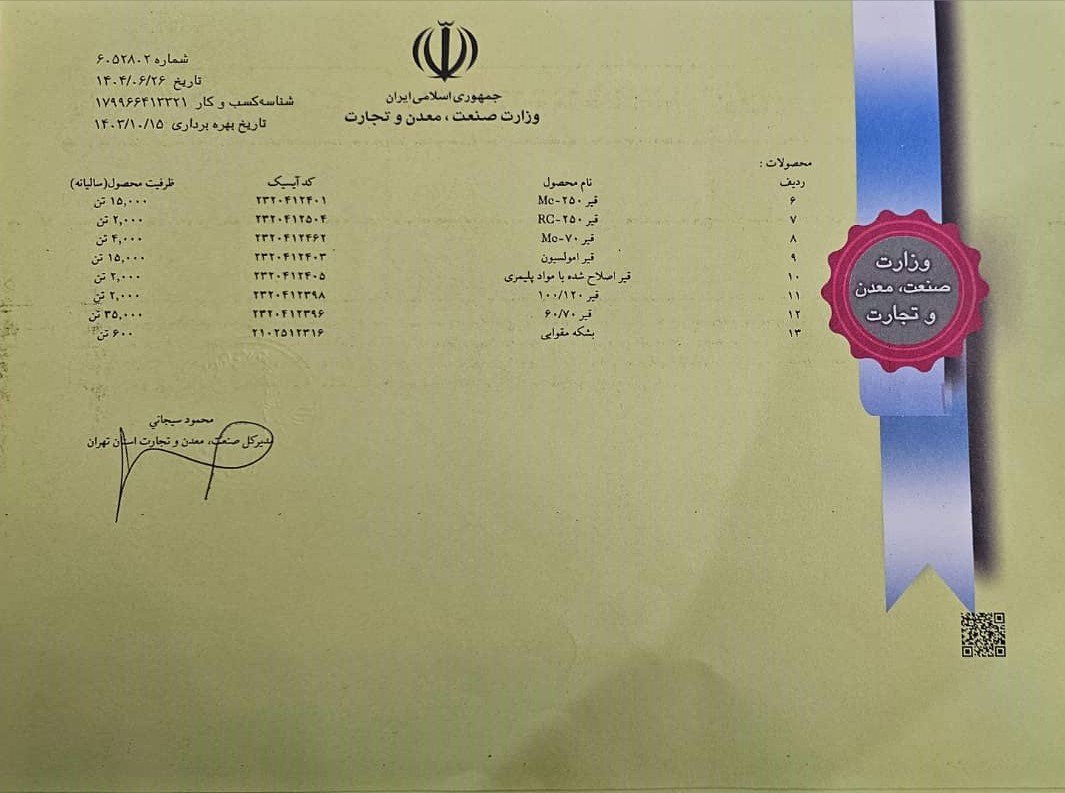 جمهوری اسلامی ایران
وزارت صنعت، معدن و تجارت
شماره ۶۰۵۲۸۰۲
تاریخ ۱۴۰۴/۰۶/۲۶
شناسه‌کسب و کار ۱۷۹۹۶۶۴۱۳۳۲۱
تاریخ بهره برداری ۱۴۰۳/۱۰/۱۵
محصولات :
ردیف نام محصول کد آیسیک ظرفیت محصول(سالیانه)
۶ قیر Mc-۲۵۰ ۲۳۲۰۴۱۲۴۰۱ ۱۵,۰۰۰ تن
۷ قیر RC-۲۵۰ ۲۳۲۰۴۱۲۵۰۴ ۲,۰۰۰ تن
۸ قیر Mc-۷۰ ۲۳۲۰۴۱۲۴۶۲ ۴,۰۰۰ تن
۹ قیر امولسیون ۲۳۲۰۴۱۲۴۰۳ ۱۵,۰۰۰ تن
۱۰ قیر اصلاح شده با مواد پلیمری ۲۳۲۰۴۱۲۴۰۵ ۲,۰۰۰ تن
۱۱ قیر ۱۰۰/۱۲۰ ۲۳۲۰۴۱۲۳۹۸ ۲,۰۰۰ تن
۱۲ قیر ۶۰/۷۰ ۲۳۲۰۴۱۲۳۹۶ ۳۵,۰۰۰ تن
۱۳ بشکه مقوایی ۲۱۰۲۵۱۲۳۱۶ ۶۰۰ تن
وزارت
صنعت، معدن
و تجارت
محمود سیجانی
مدیرکل صنعت، معدن و تجارت استان تهران